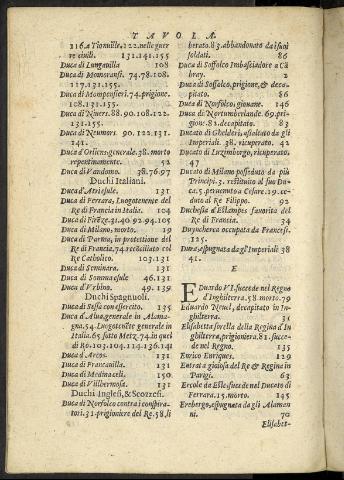 TAVOLA.
116.a Tionuilla.122.nelle guer
re ciuili. 131.141.155
Duca di Lungauilla 108
Duca di Momoransi. 74.78.108.
117.131.155.
Duca di Mompensieri.74.prigione.
108.131.155.
Duca di Niuers.88.90.108.122.
131.155.
Duca di Neumors. 90.122.131.
141.
Duca d'Orliens generale.38.morto
repentinamente. 52
Duca di Vandomo. 38.76.97
Duchi Italiani.
Duca d'Atri esule. 131
Duca di Ferrara, Luogotenente del
Re di Francia in Italia. 104
Duca di Firẽze.31.40.92.94.105
Duca di Milano, morto. 19
Duca di Parma, in protettione del
Re di Francia, 74 reconciliato col
Re Catholico. 103.131
Duca di Seminara. 131
Duca di Somma esule 46.131
Duca d'Vrbino. 49.139
Duchi Spagnuoli.
Duca di Sessa con essercito. 135
Duca d'Alua, generale in Alama-
gna.54.Luogotenẽte generale in
Italia.65.sotto Metz.74.in quel
di Ro.103.104.114.136.141
Duca d'Arcos. 131
Duca di Francauilla. 131
Duca di Medina celi. 150
Duca di Villhermosa. 131
Duchi Inglesi, & Scozzesi.
Duca di Norfolco contra i conspira-
tori.31.prigioniere del Re.58.li
berato.83.abbandonato da i suoi
soldati. 86
Duca di Soffolco Imbasciadore a Cã
bray. 2
Duca di Soffolco, prigione, & deca-
pitato. 86
Duca di Norfolco, giouane. 146
Duca di Northumberlande.69.pri-
gione.82.decapitato. 83
Ducato di Ghelderi, assoltato da gli
Imperiali. 38. ricuperato. 42
Ducato di Luzimborgo, ricuperato.
47
Ducato di Milano posseduto da più
Principi. 3. restituito al suo Du-
ca.5.peruenuto a Cesare.19.ce-
duto al Re Filippo. 92
Duchessa d'Estampes fauorita del
Re di Francia. 34
Duyncherca occupata da Francesi.
125.
Dura, espugnata da gl'Imperiali 38
41.
E
Eduardo VI. succede nel Regno
d'Inghilterra.58.morto 79
Eduardo Neuel, decapitato in In-
ghilterra. 35
Elisabetta sorella della Regina d'In
ghilterra, prigioniera.81.succe-
de nel Regno. 135
Enrico Enriques. 129
Entrata gioiosa del Re & Regina in
Parigi. 63
Ercole da Este succede nel Ducato di
Ferrara.15.morto. 145
Ereberg, espugnata da gli Alaman
ni. 70
Elisabet-